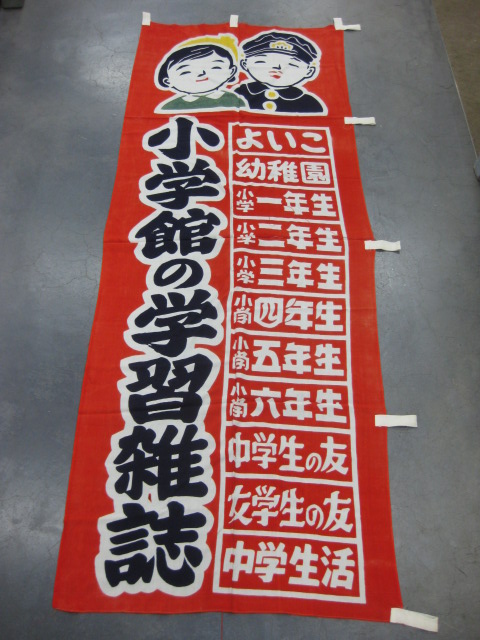 小学館の学習雑誌
よいこ
幼稚園
小学一年生
小学二年生
小学三年生
小学四年生
小学五年生
小学六年生
中学生の友
女学生の友
中学生活